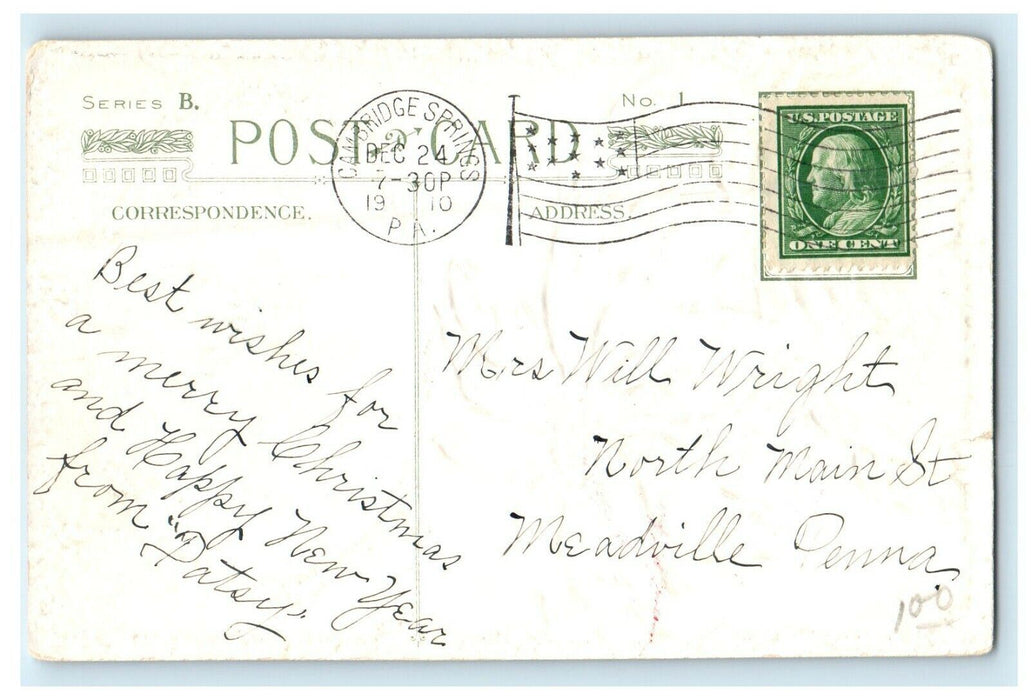 SERIES B.
No. 1
POST CARD
CAMBRIDGE SPRINGS
DEC 24
7-30P
19 10
PA.
U.S. POSTAGE
ONE CENT
CORRESPONDENCE.
ADDRESS.
Best wishes for
a merry Christmas
and Happy New Year
from "Patsy".
Mrs Will Wright
North Main St
Meadville Penna,
100